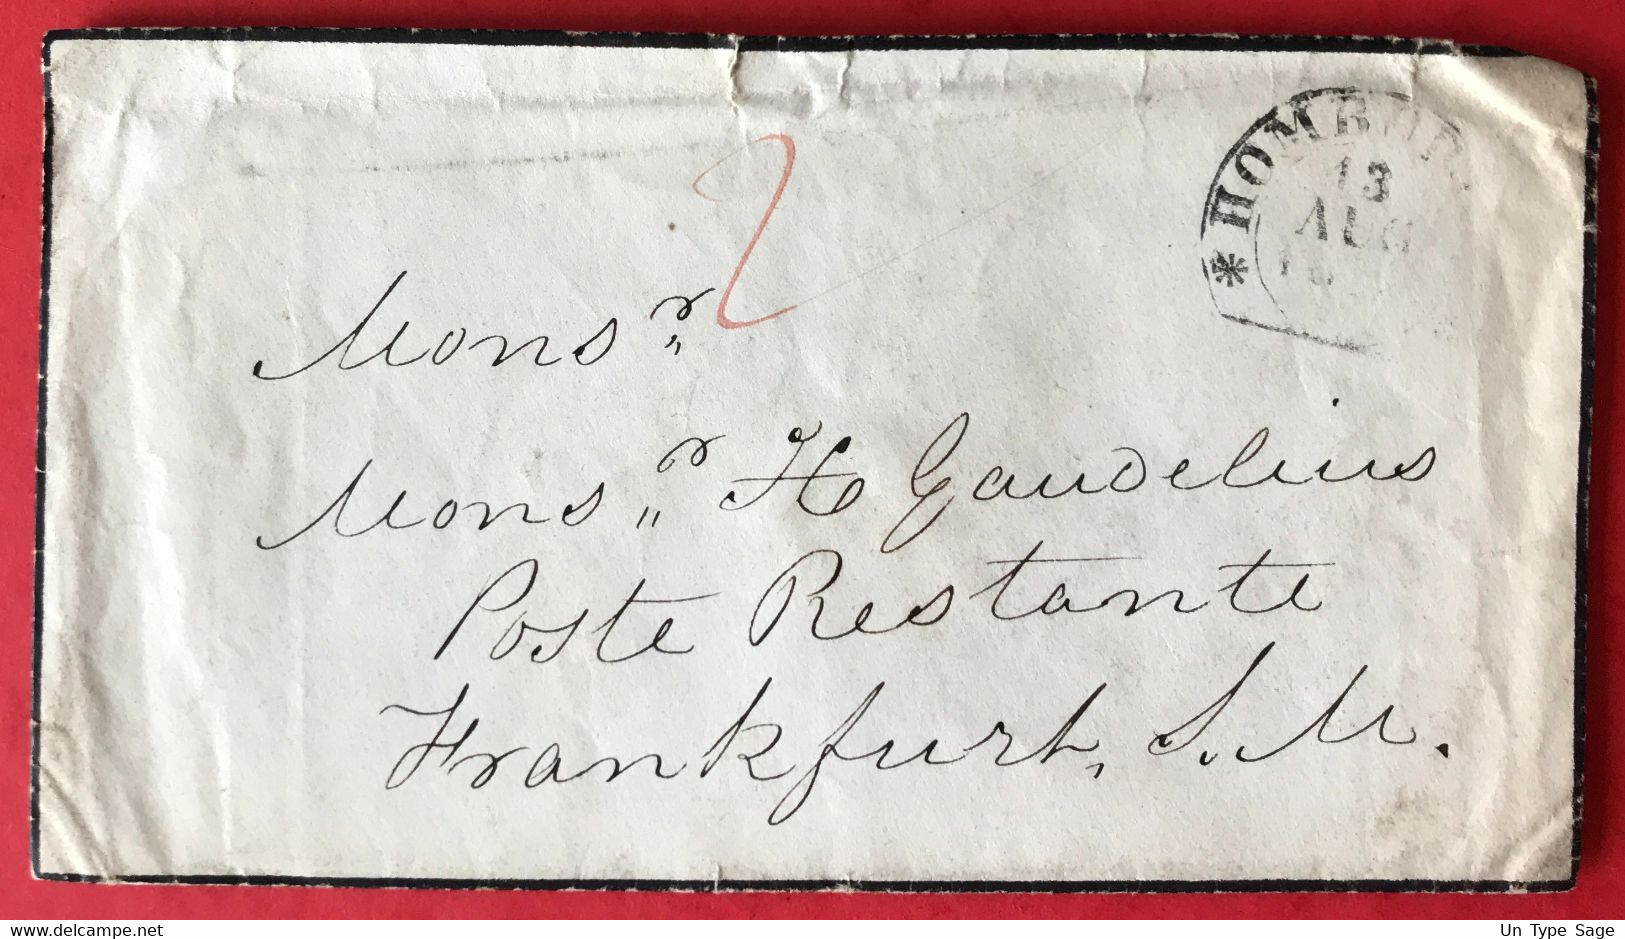 2
* HOMBURG
13
AUG
Mons.r
Mons.r H Gaudelius
Poste Restante
Frankfurt, S. M.
delcampe.net
Un Type Sage